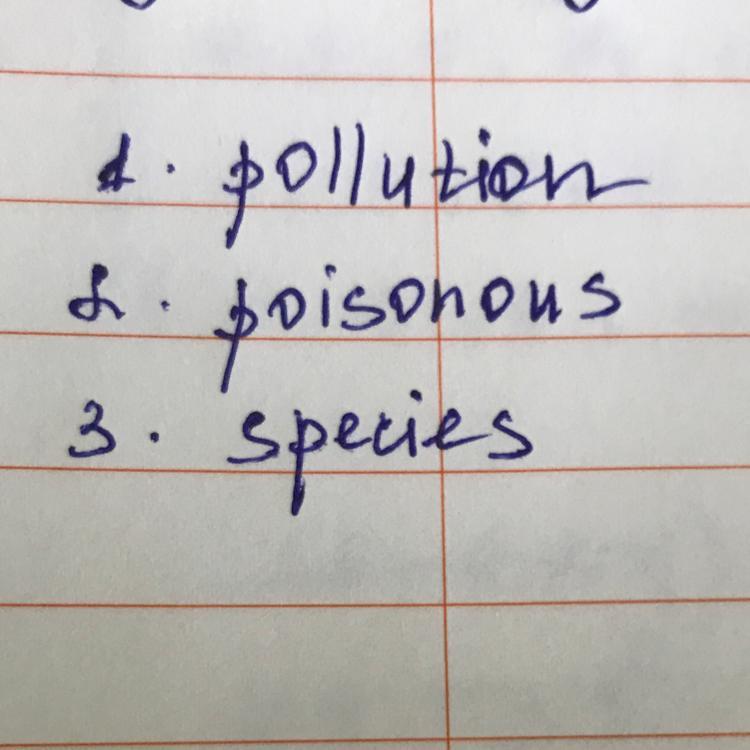 1. pollution
2. poisonous
3. species